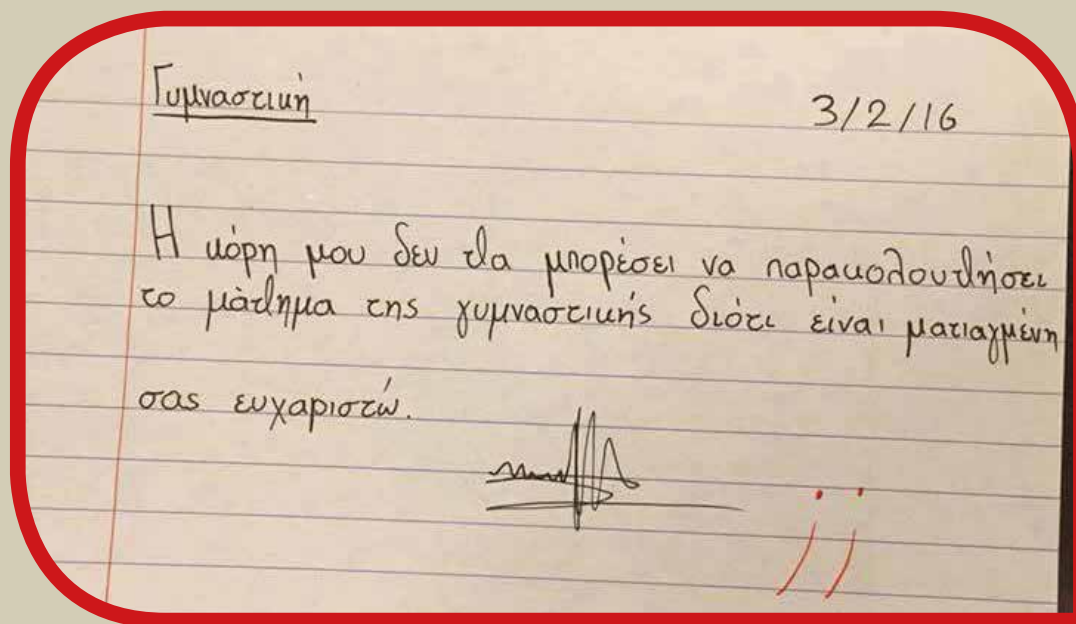 Γυμναστική
3/2/16
Η κόρη μου δεν θα μπορέσει να παρακολουθήσει
το μάθημα της γυμναστικής διότι είναι ματιαγμένη
σας ευχαριστώ.
;;